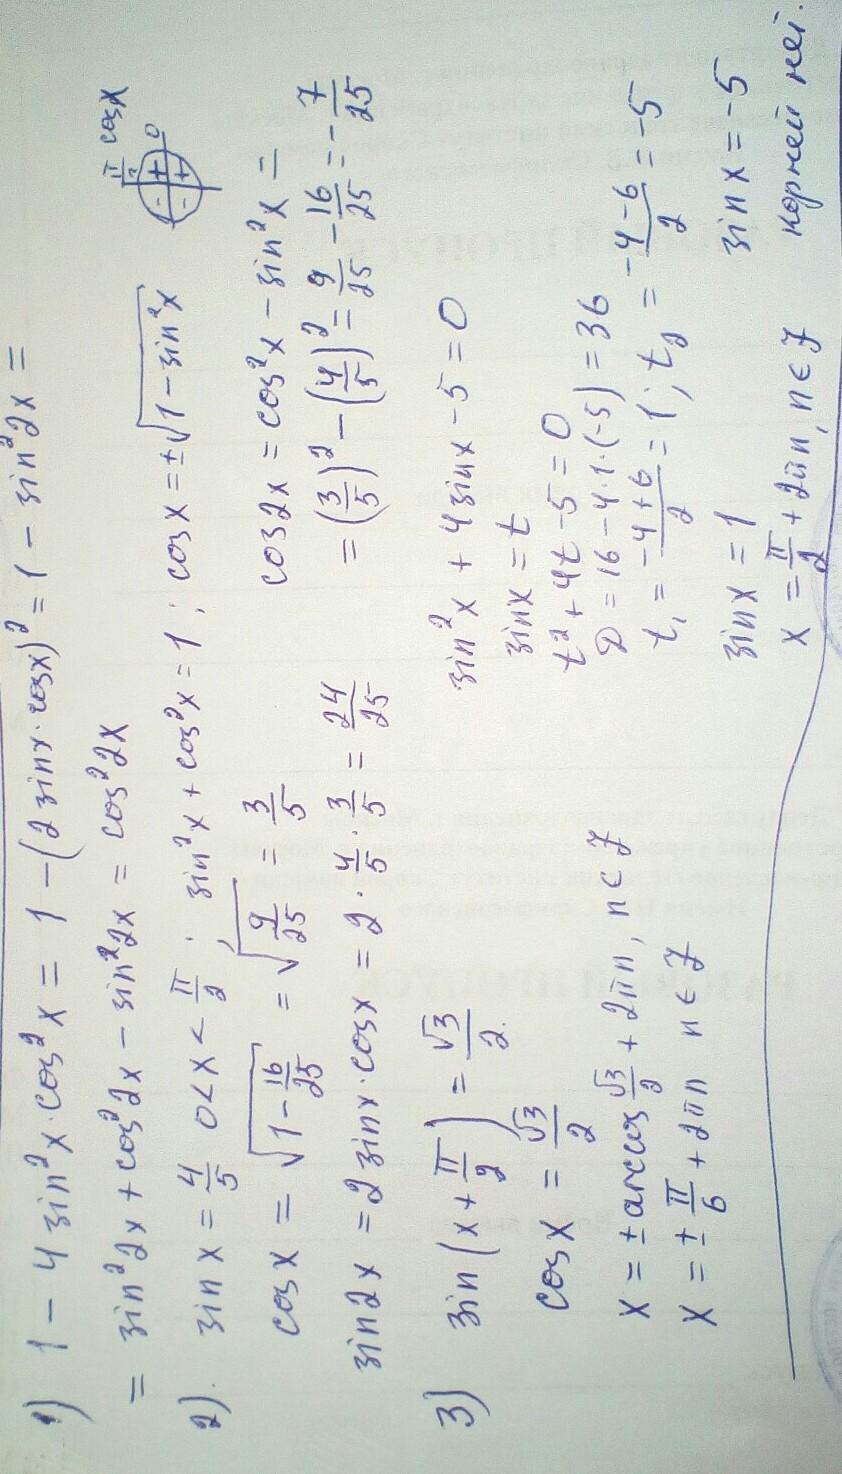 1) 1 - 4 sin²x · cos²x = 1 - (2 sinx · cosx)² = 1 - sin²2x =
= sin²2x + cos²2x - sin²2x = cos²2x
2). sinx = 4/5 0 < x < π/2. sin²x + cos²x = 1; cosx = ±√(1 - sin²x)
π/2 cosx
0
+ - - +
cosx = √(1 - 16/25) = √(9/25) = 3/5
sin2x = 2 sinx · cosx = 2 · 4/5 · 3/5 = 24/25
cos2x = cos²x - sin²x =
= (3/5)² - (4/5)² = 9/25 - 16/25 = -7/25
3) sin(x + π/2) = √3/2
cosx = √3/2
x = ± arccos √3/2 + 2πn, n ∈ Z
x = ± π/6 + 2πn n ∈ Z
sin²x + 4 sinx - 5 = 0
sinx = t
t² + 4t - 5 = 0
D = 16 - 4 · 1 · (-5) = 36
t₁ = (-4 + 6)/2 = 1; t₂ = (-4 - 6)/2 = -5
sinx = 1
x = π/2 + 2πn, n ∈ Z
sinx = -5
корней нет.